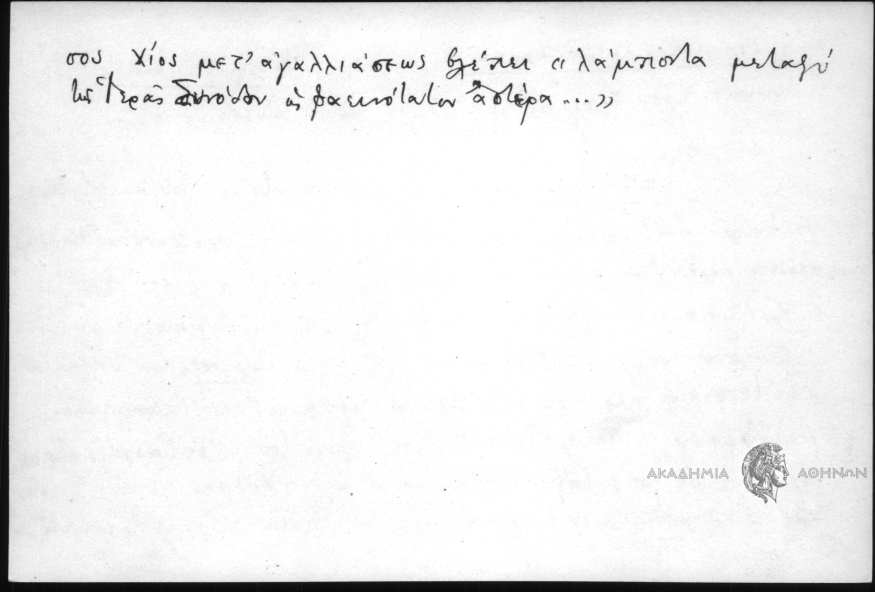 σος Χίος μετ' ἀγαλλιάσεως βλέπει « λάμποντα μεταξὺ
τῆς Ἱερᾶς Συνόδου ὡς φαεινότατον ἀστέρα...»
ΑΚΑΔΗΜΙΑ ΑΘΗΝΩΝ